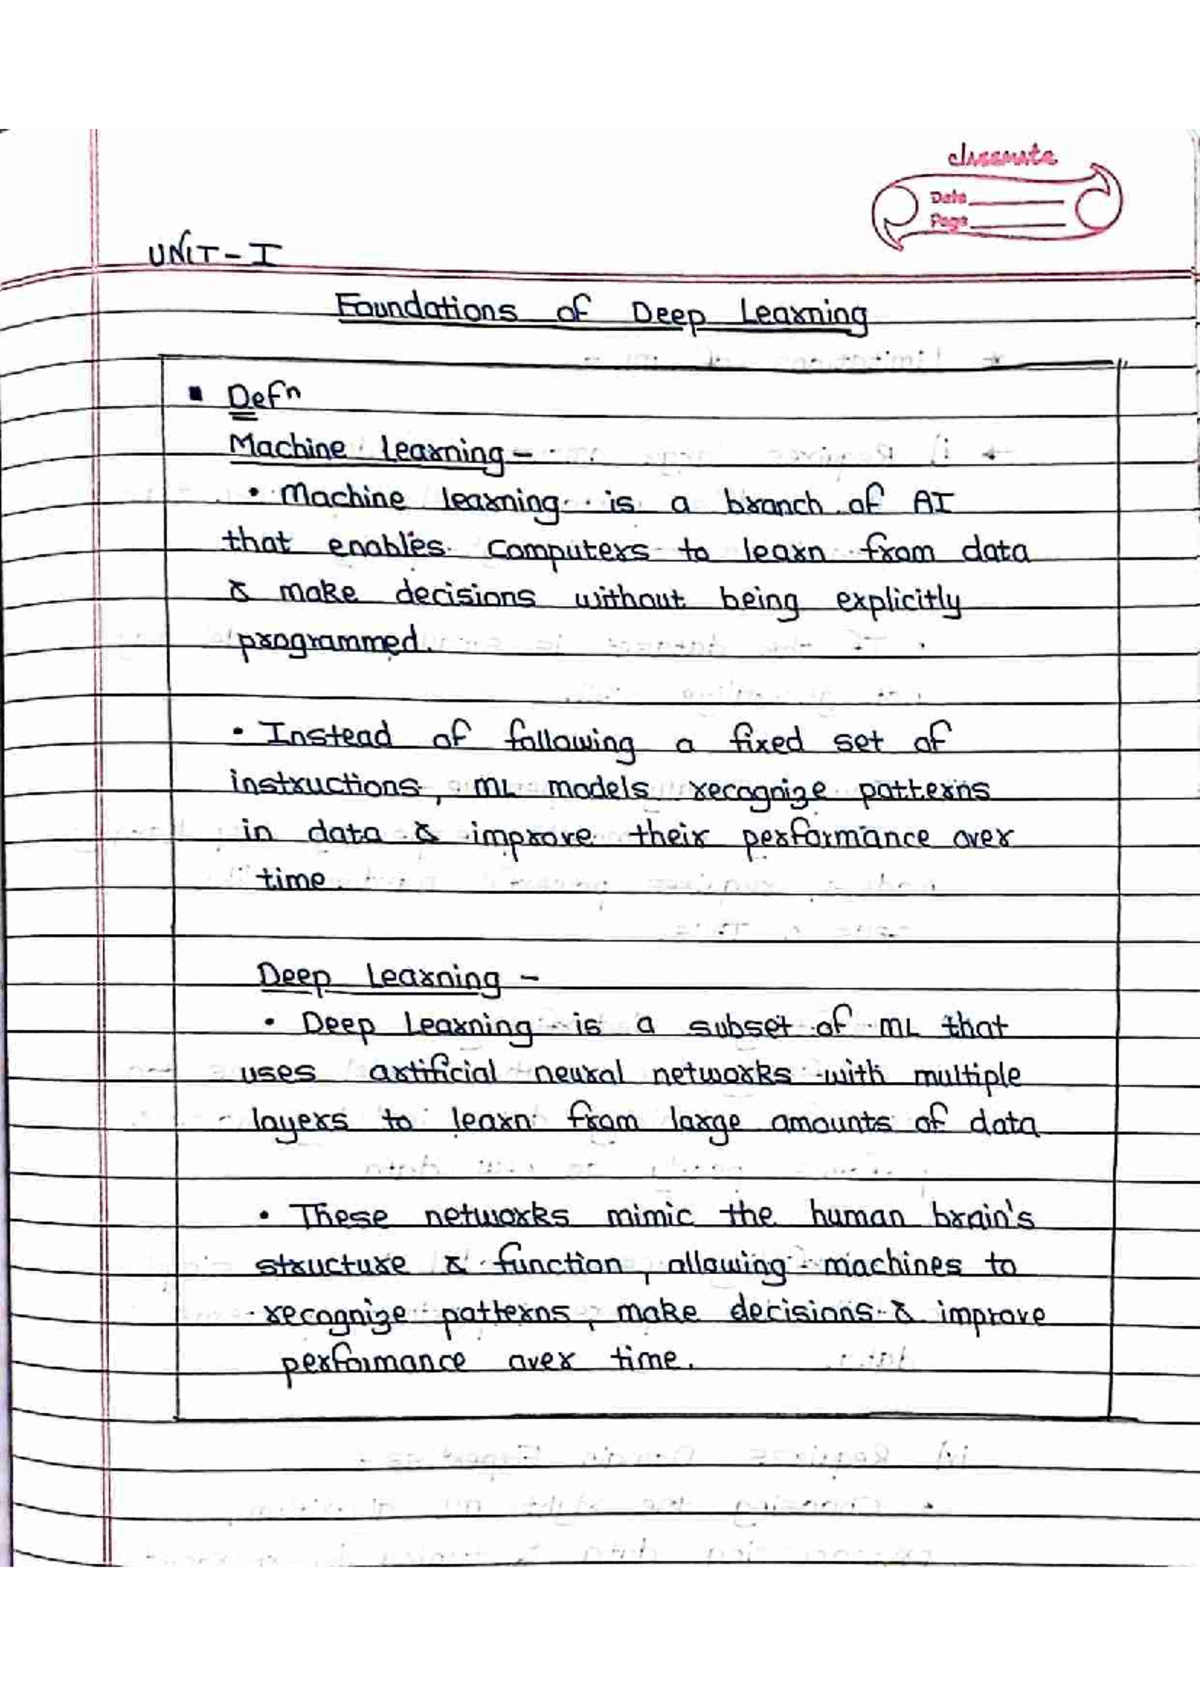 classmate
Date
Page
UNIT - I
Foundations of Deep Learning
▪ Defⁿ
Machine Learning -
• Machine learning is a branch of AI
that enables computers to learn from data
& make decisions without being explicitly
programmed.
• Instead of following a fixed set of
instructions, ML models recognize patterns
in data & improve their performance over
time.
Deep Learning -
• Deep Learning is a subset of ML that
uses artificial neural networks with multiple
layers to learn from large amounts of data
• These networks mimic the human brain's
structure & function, allowing machines to
recognize patterns, make decisions & improve
performance over time.